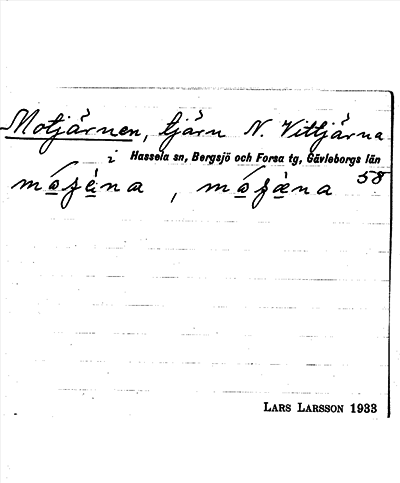 Motjärnen, tjärn N. Vittjärna
i Hassela sn, Bergsjö och Forsa tg, Gävleborgs län
58
LARS LARSSON 1933